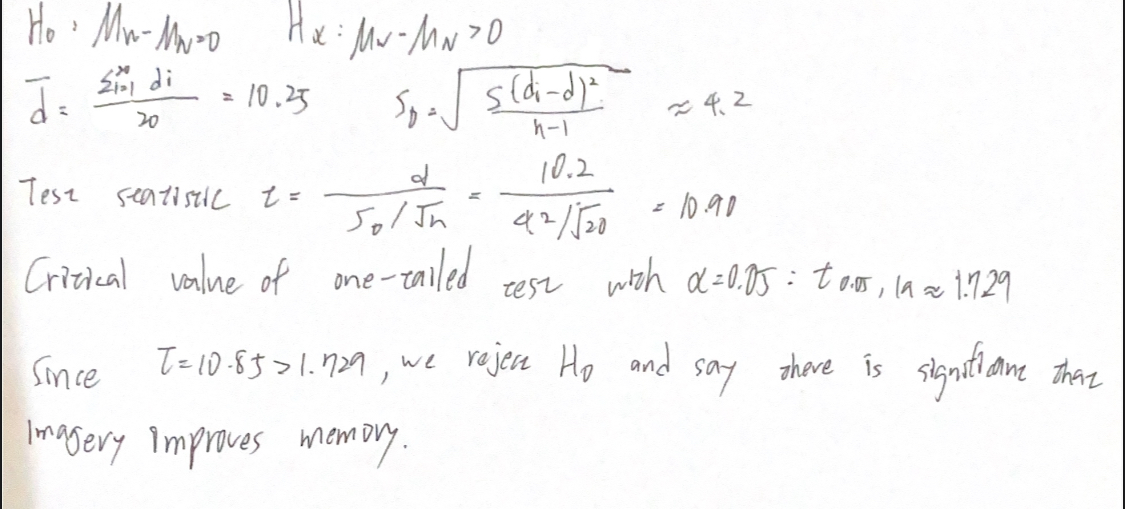 H₀ : Mw-MN=0 Hα : Mw-MN>0
d̄ = Σ²⁰ᵢ₌₁ di / 20 = 10.25 S_D = √(S(di-d)² / n-1) ≈ 4.2
Test statistic t = d / (S_D/√n) = 10.2 / (4.2/√20) = 10.90
Critical value of one-tailed test with α=0.05 : t 0.05, 19 ≈ 1.729
Since T=10.85>1.729, we reject H₀ and say there is significant that
Imagery improves memory.